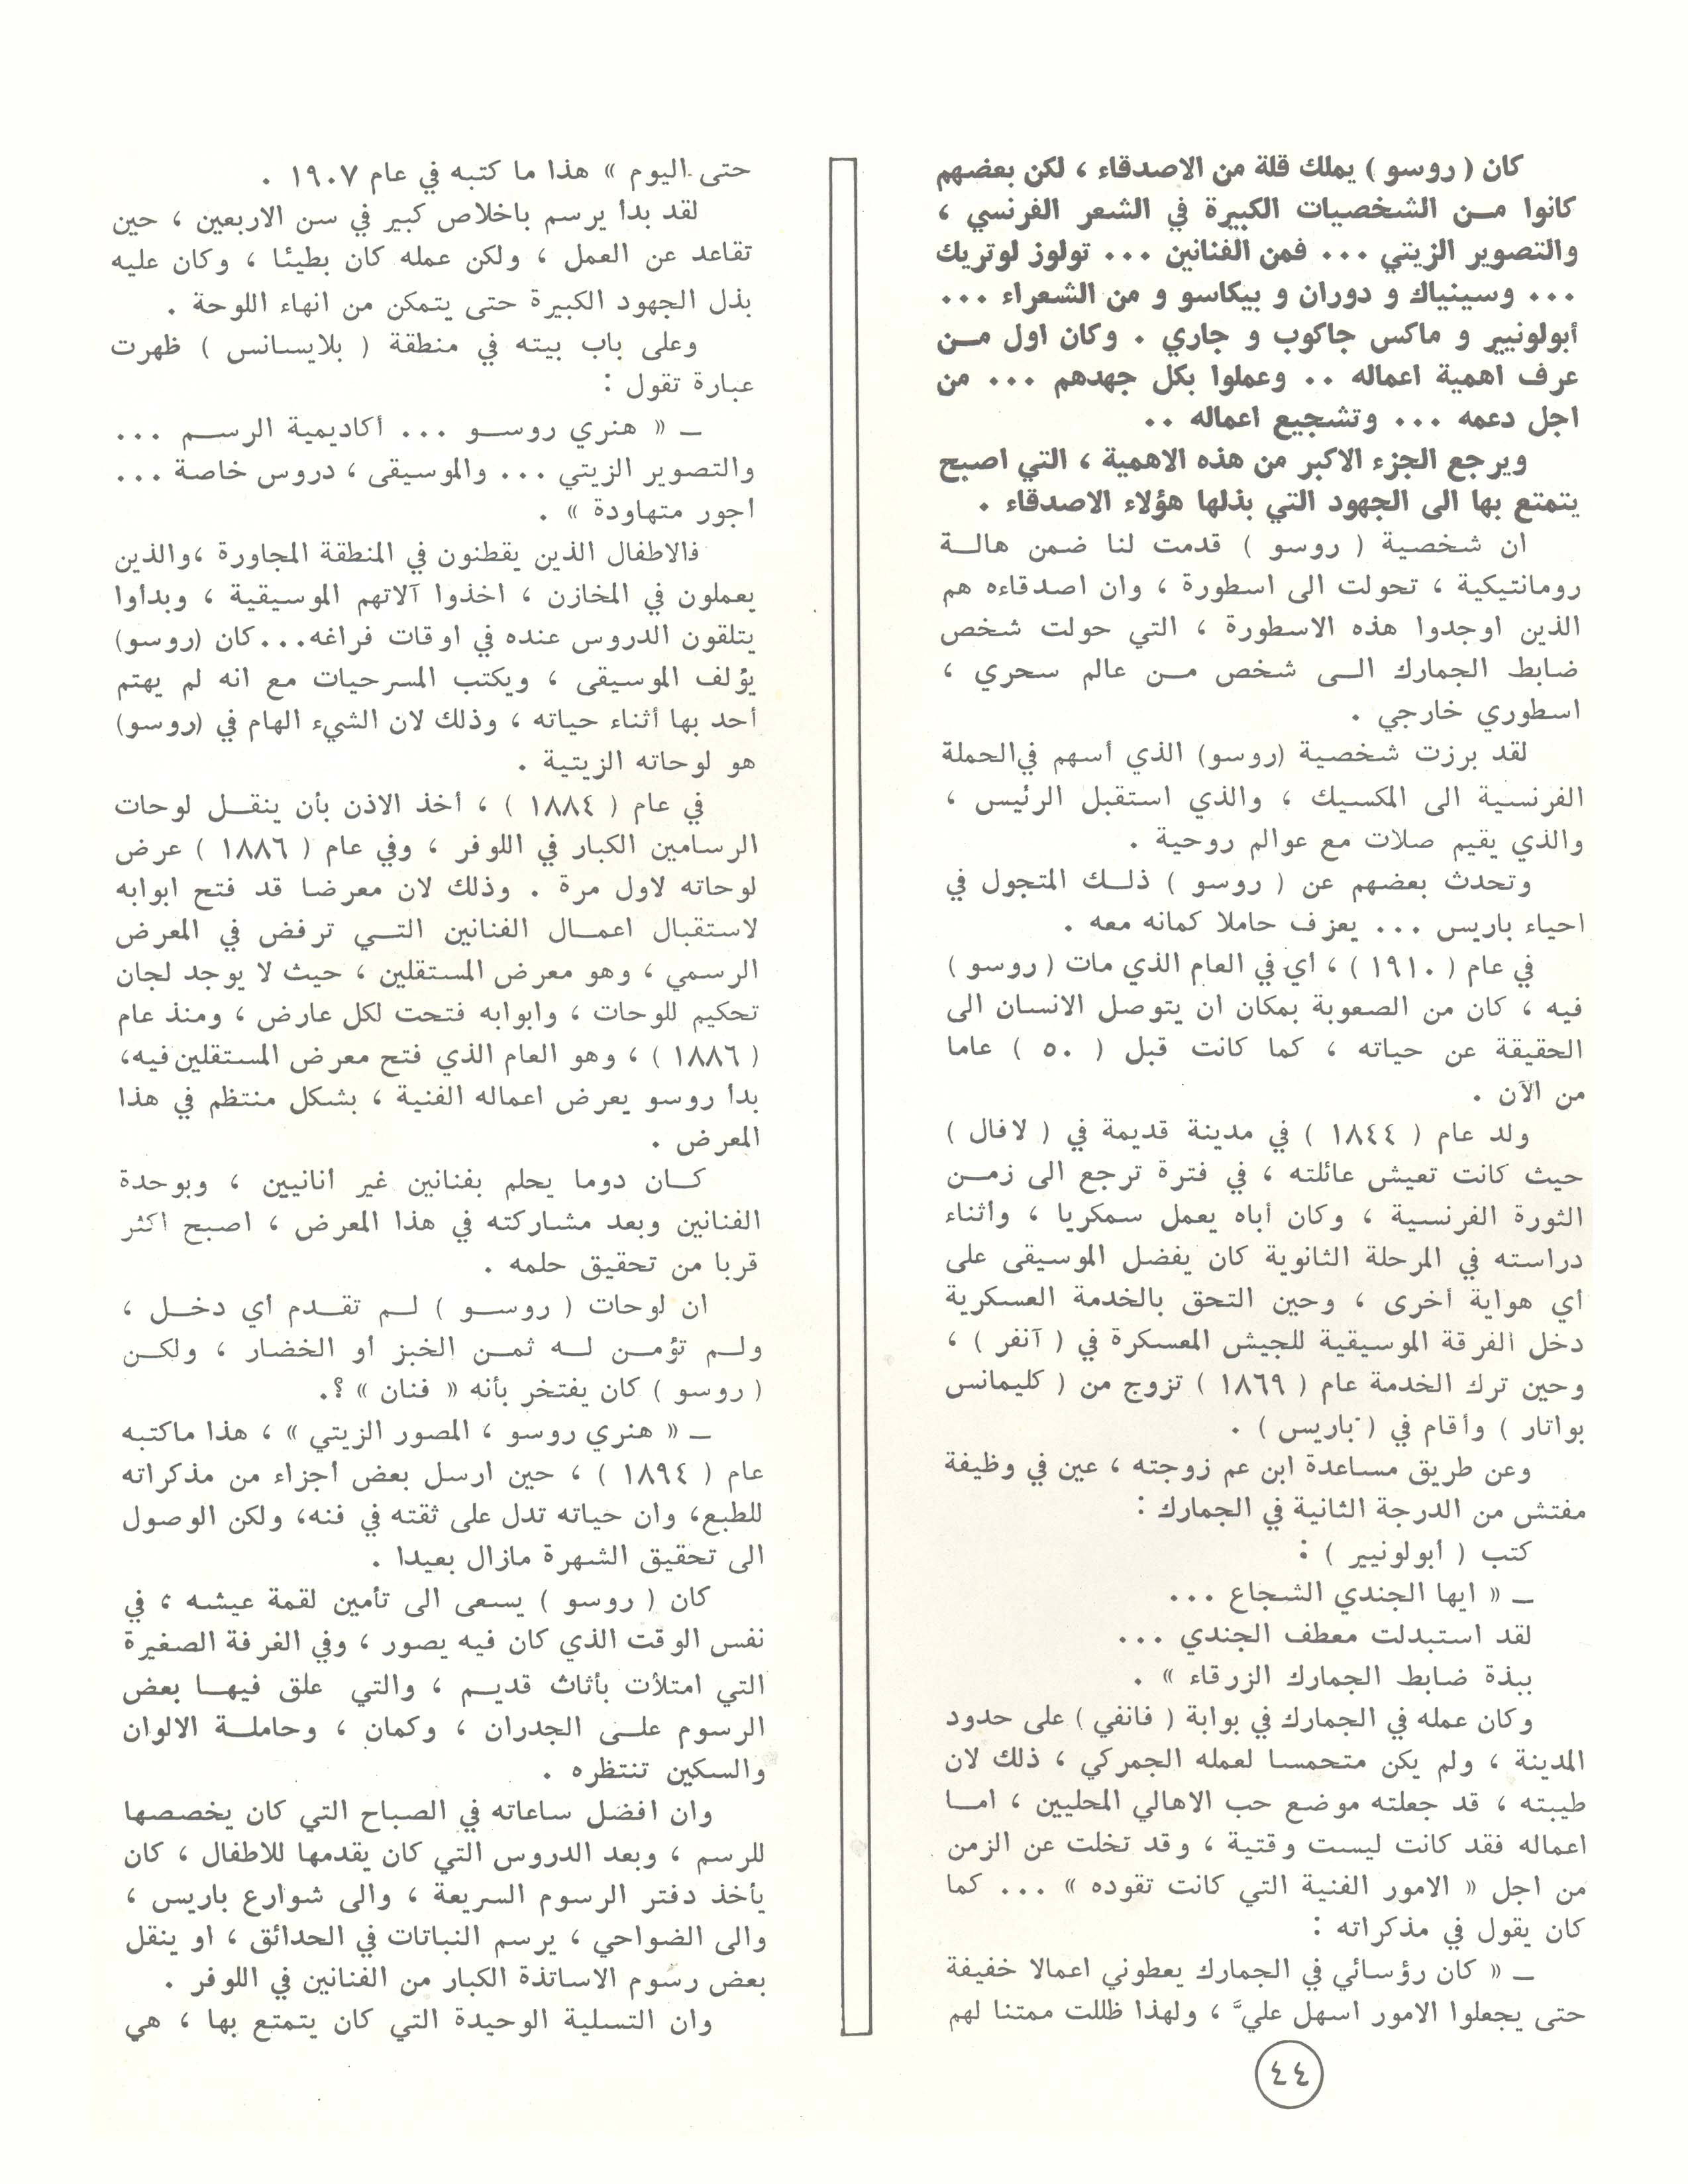 كان ( روسو ) يملك قلة من الاصدقاء ، لكن بعضهم
كانوا مـن الشخصيات الكبيرة في الشعر الفرنسي ،
والتصوير الزيتي ... فمن الفنانين ... تولوز لوتريك
... وسينياك و دوران و بيكاسو و من الشعراء ...
أبولونيير و ماكس جاكوب و جاري . وكان اول مـن
عرف اهمية اعماله .. وعملوا بكل جهدهم ... من
اجل دعمه ... وتشجيع اعماله ..
ويرجع الجزء الاكبر من هذه الاهمية ، التي اصبح
يتمتع بها الى الجهود التي بذلها هؤلاء الاصدقاء .
ان شخصية ( روسو ) قدمت لنا ضمن هالـة
رومانتيكية ، تحولت الى اسطورة ، وان اصدقاءه هم
الذين اوجدوا هذه الاسطورة ، التي حولت شخص
ضابط الجمارك الـى شخص مـن عالم سحري ،
اسطوري خارجي .
لقد برزت شخصية (روسو) الذي أسهم في الحملة
الفرنسية الى المكسيك ، والذي استقبل الرئيس ،
والذي يقيم صلات مع عوالم روحية .
وتحدث بعضهم عن ( روسو ) ذلـك المتجول في
احياء باريس ... يعزف حاملا كمانه معه .
في عام ( ١٩١٠ ) ، أي في العام الذي مات ( روسو )
فيه ، كان من الصعوبة بمكان ان يتوصل الانسان الى
الحقيقة عن حياته ، كما كانت قبل ( ٥٠ ) عاما
من الآن .
ولد عام ( ١٨٤٤ ) في مدينة قديمة في ( لافال )
حيث كانت تعيش عائلته ، في فترة ترجع الى زمـن
الثورة الفرنسية ، وكان أباه يعمل سمكريا ، وأثناء
دراسته في المرحلة الثانوية كان يفضل الموسيقى على
أي هواية أخرى ، وحين التحق بالخدمة العسكرية
دخل الفرقة الموسيقية للجيش المعسكرة في ( آنفر ) ،
وحين ترك الخدمة عام ( ١٨٦٩ ) تزوج من ( كليمانس
بواتار ) وأقام في ( باريس ) .
وعن طريق مساعدة ابن عم زوجته ، عين في وظيفة
مفتش من الدرجة الثانية في الجمارك :
كتب ( أبولونيير ) :
ـ « ايها الجندي الشجاع ...
لقد استبدلت معطف الجندي ...
ببذة ضابط الجمارك الزرقاء » .
وكان عمله في الجمارك في بوابة ( فانفي ) على حدود
المدينة ، ولم يكن متحمسا لعمله الجمركي ، ذلك لان
طيبته ، قد جعلته موضع حب الاهالي المحليين ، امـا
اعماله فقد كانت ليست وقتية ، وقد تخلت عن الزمن
من اجل « الامور الفنية التي كانت تقوده » ... كما
كان يقول في مذكراته :
ـ « كان رؤسائي في الجمارك يعطوني اعمالا خفيفة
حتى يجعلوا الامور اسهل عليَّ ، ولهذا ظللت ممتنا لهم
حتى اليوم » هذا ما كتبه في عام ١٩٠٧ .
لقد بدأ يرسم باخلاص كبير في سن الاربعين ، حين
تقاعد عن العمل ، ولكن عمله كان بطيئا ، وكان عليه
بذل الجهود الكبيرة حتى يتمكن من انهاء اللوحة .
وعلى باب بيته في منطقة ( بلايسانس ) ظهرت
عبارة تقول :
ـ « هنري روسـو ... أكاديمية الرسـم ...
والتصوير الزيتي ... والموسيقى ، دروس خاصة ...
اجور متهاودة » .
فالاطفال الذين يقطنون في المنطقة المجاورة ،والذين
يعملون في المخازن ، اخذوا آلاتهم الموسيقية ، وبدأوا
يتلقون الدروس عنده في اوقات فراغه...كان (روسو)
يؤلف الموسيقى ، ويكتب المسرحيات مع انه لم يهتم
أحد بها أثناء حياته ، وذلك لان الشيء الهام في (روسو)
هو لوحاته الزيتية .
في عام ( ١٨٨٤ ) ، أخذ الاذن بأن ينقـل لوحات
الرسامين الكبار في اللوفر ، وفي عام ( ١٨٨٦ ) عرض
لوحاته لاول مرة . وذلك لان معرضا قد فتح ابوابه
لاستقبال اعمـال الفنانين التـي ترفض في المعرض
الرسمي ، وهو معرض المستقلين ، حيث لا يوجد لجان
تحكيم للوحات ، وابوابه فتحت لكل عارض ، ومنذ عام
( ١٨٨٦ ) ، وهو العام الذي فتح معرض المستقلين فيه،
بدأ روسو يعرض اعماله الفنية ، بشكل منتظم في هذا
المعرض .
كـان دوما يحلم بفنانين غير انانيين ، وبوحدة
الفنانين وبعد مشاركته في هذا المعرض ، اصبح اكثر
قربا من تحقيق حلمه .
ان لوحات ( روسـو ) لـم تقـدم اي دخـل ،
ولـم تؤمـن لـه ثمـن الخبز أو الخضار ، ولكـن
( روسو ) كان يفتخر بأنه « فنان » ؟.
ـ « هنري روسو ، المصور الزيتي » ، هذا ماكتبه
عام ( ١٨٩٤ ) ، حين ارسل بعض أجزاء من مذكراته
للطبع، وان حياته تدل على ثقته في فنه، ولكن الوصول
الى تحقيق الشهرة مازال بعيدا .
كان ( روسو ) يسعى الى تأمين لقمة عيشه ، في
نفس الوقت الذي كان فيه يصور ، وفي الغرفة الصغيرة
التي امتلأت بأثاث قديـم ، والتي علق فيهـا بعض
الرسوم علـى الجدران ، وكمان ، وحاملـة الالوان
والسكين تنتظره .
وان افضل ساعاته في الصباح التي كان يخصصها
للرسم ، وبعد الدروس التي كان يقدمها للاطفال ، كان
يأخذ دفتر الرسوم السريعة ، والى شوارع باريس ،
والى الضواحي ، يرسم النباتات في الحدائق ، او ينقل
بعض رسوم الاساتذة الكبار من الفنانين في اللوفر .
وان التسلية الوحيدة التي كان يتمتع بها ، هي
٤٤